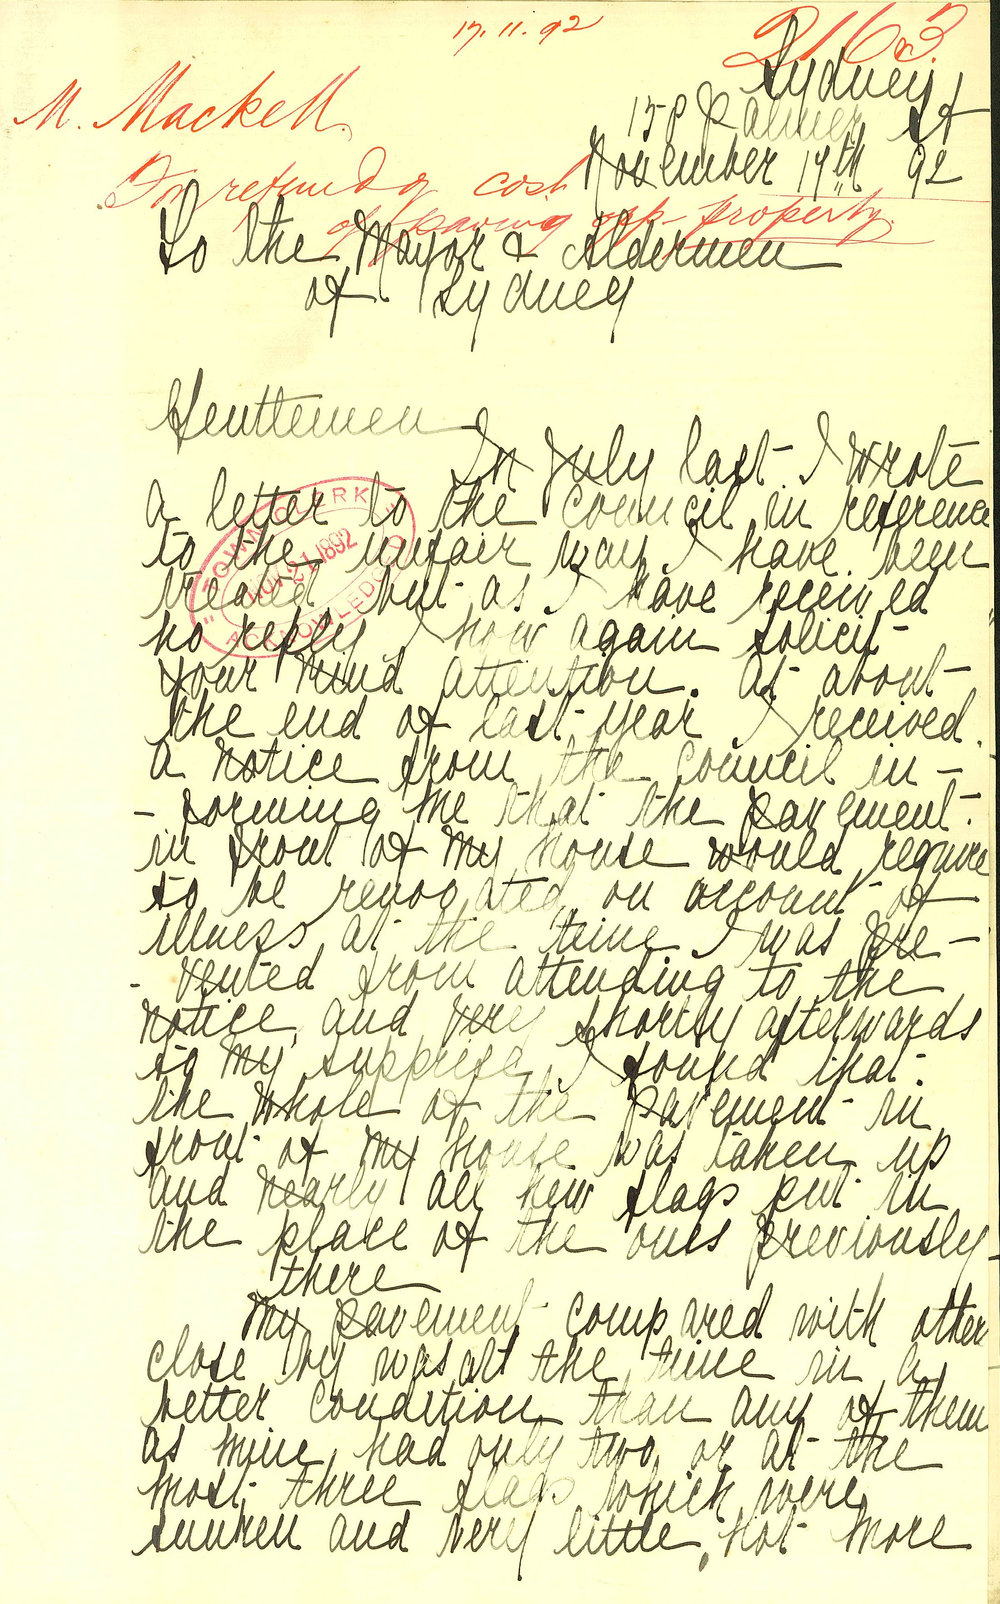 17.11.92
2163
M. Mackell.
For refund of cost
of paving opp. property.
Sydney
150 Palmer St
November 17th 92
To the Mayor & Aldermen
of Sydney
Gentlemen
In July last I wrote
a letter to the council in reference
to the unfair way I have been
treated but as I have received
no reply I now again solicit
your kind attention. At about
the end of last year I received
a notice from the council in-
-forming me that the pavement
in front of my house would require
to be renovated on account of
illness at the time I was pre-
-vented from attending to the
notice, and very shortly afterwards
to my supprise I found that
the whole of the pavement in
front of my house was taken up
and nearly all new flags put in
the place of the ones previously
there
My pavement compared with other
close by was at the time in a
better condition than any of them
as mine had only two or at the
most three flags which were
sunken and very little, not more
TOWN CLERK
NOV 21 1892
ACKNOWLEDGED